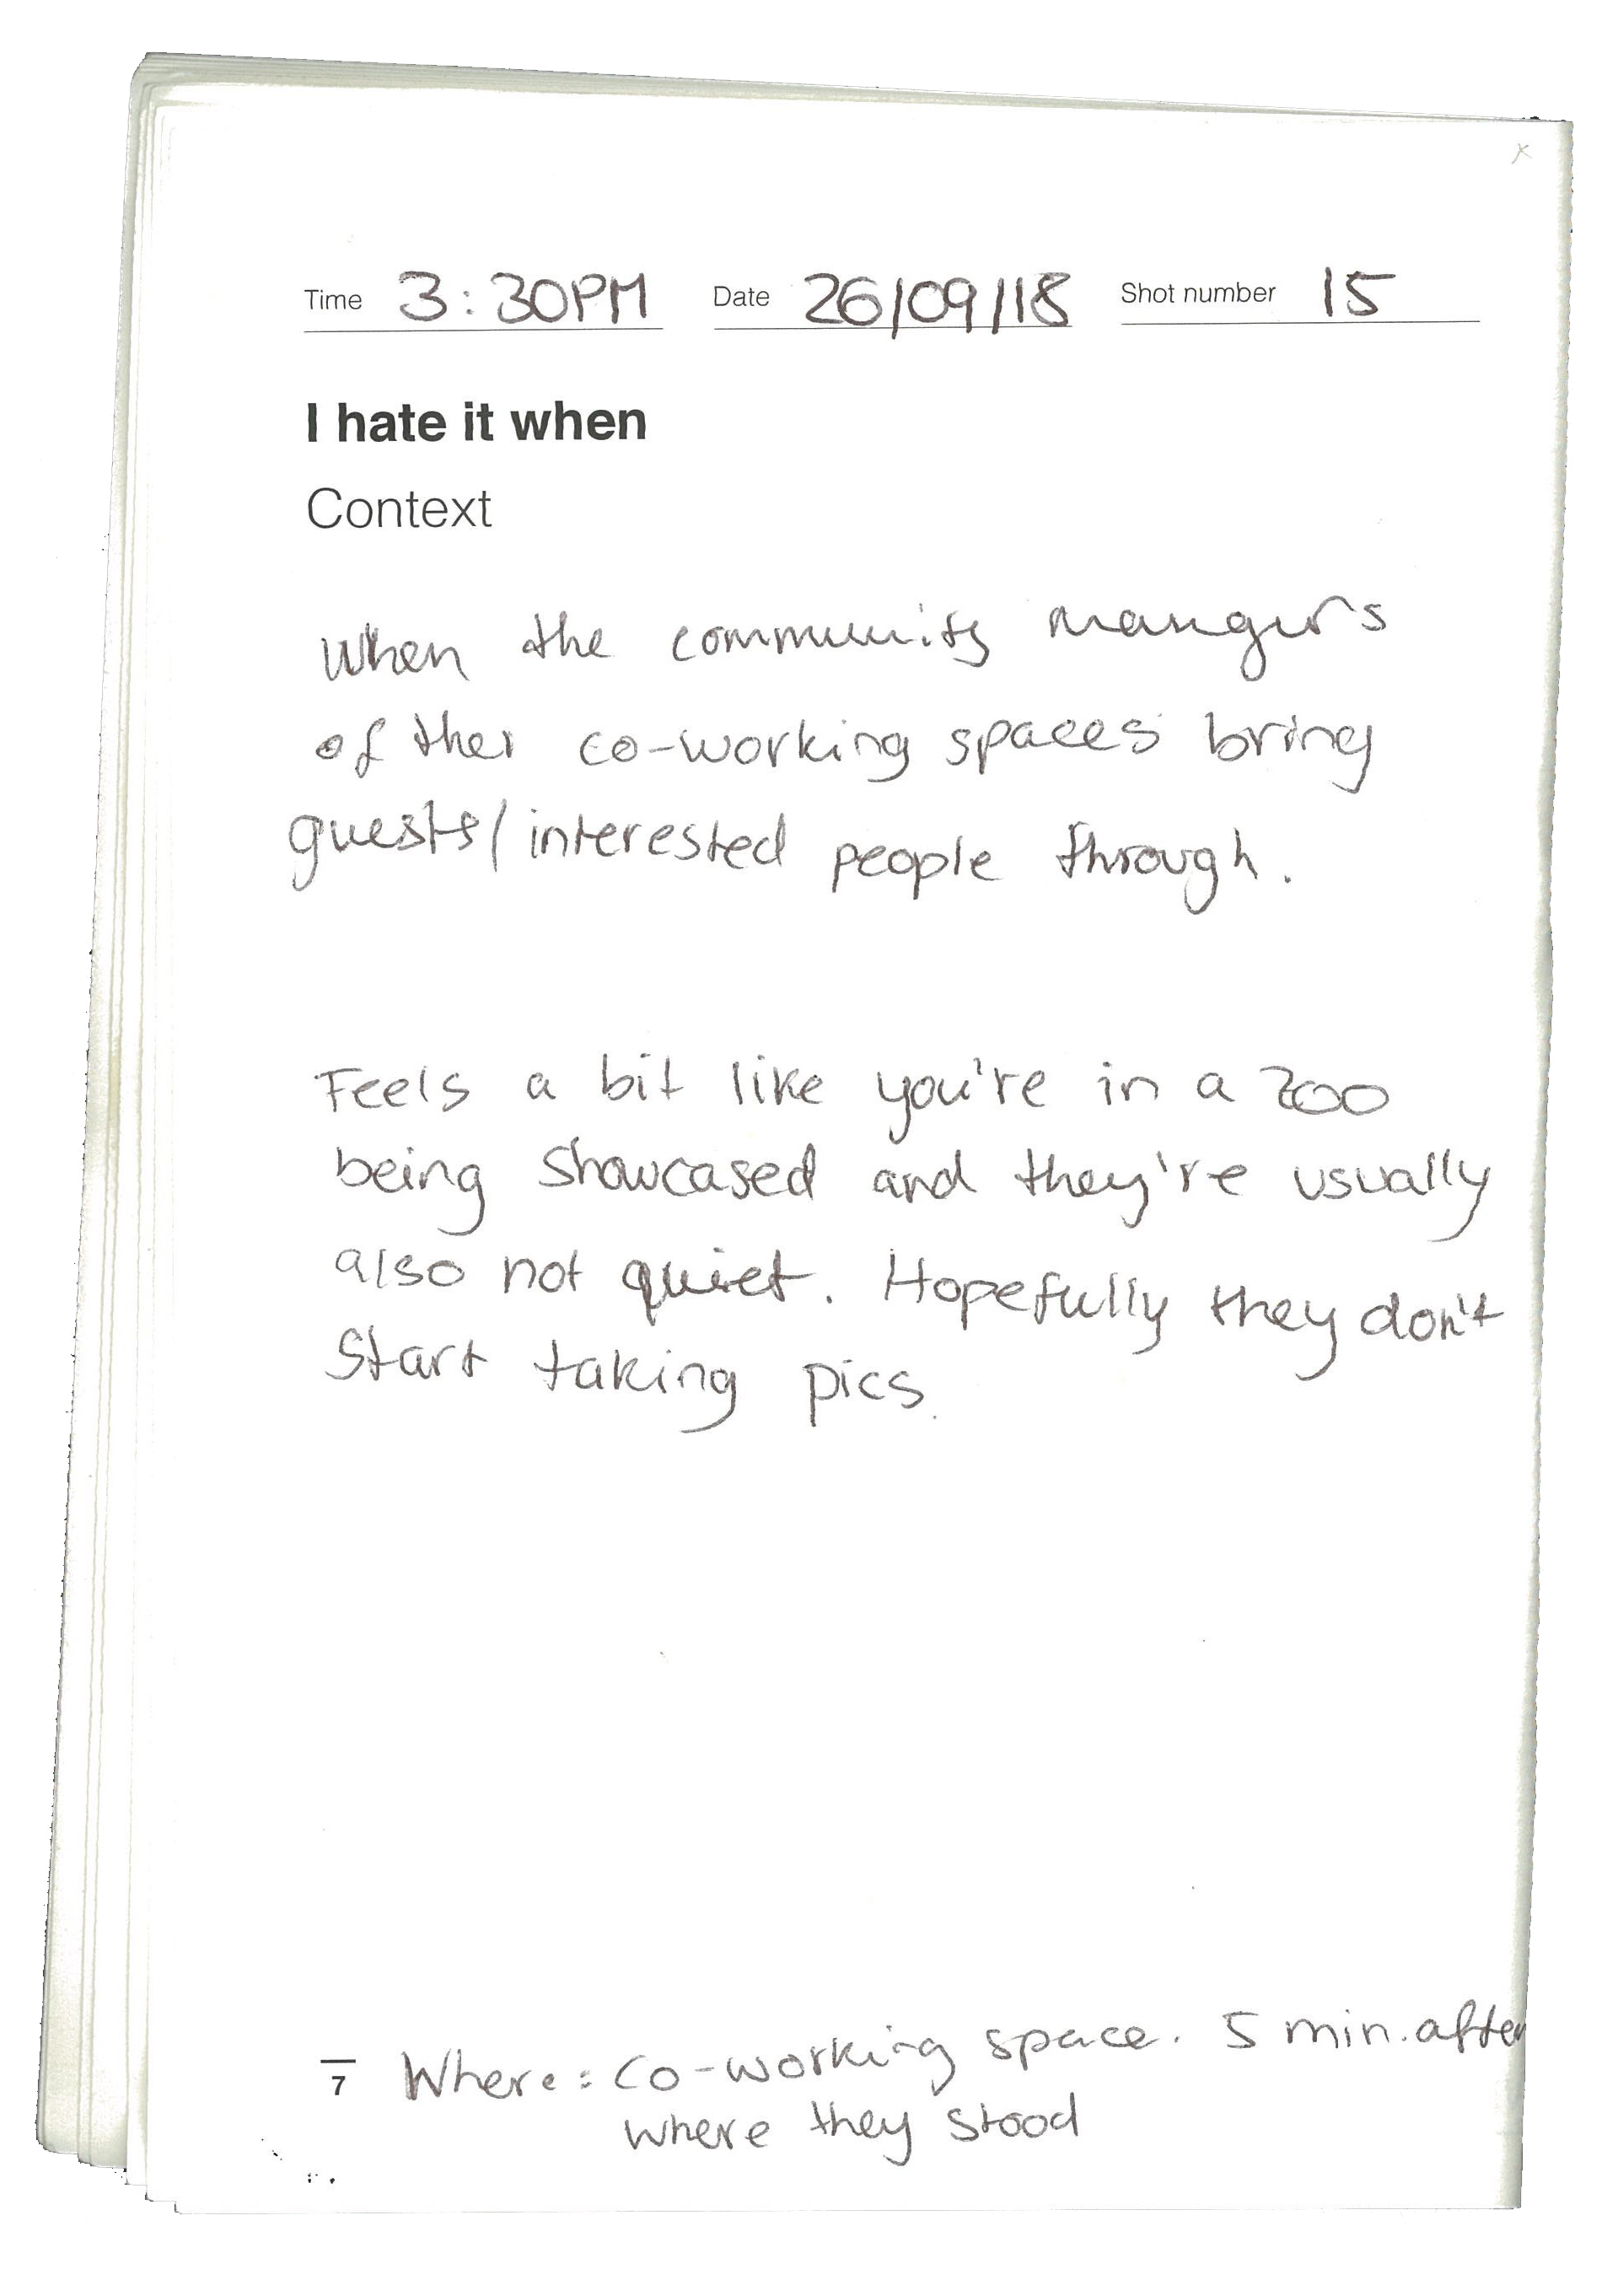 Time 3:30PM Date 26/09/18 Shot number 15
I hate it when
Context
When the community mangers
of ther co-working spaces bring
guests/interested people through.
Feels a bit like you're in a zoo
being showcased and they're usually
also not quiet. Hopefully they don't
start taking pics.
7 Where: Co-working space. 5 min. after
where they stood